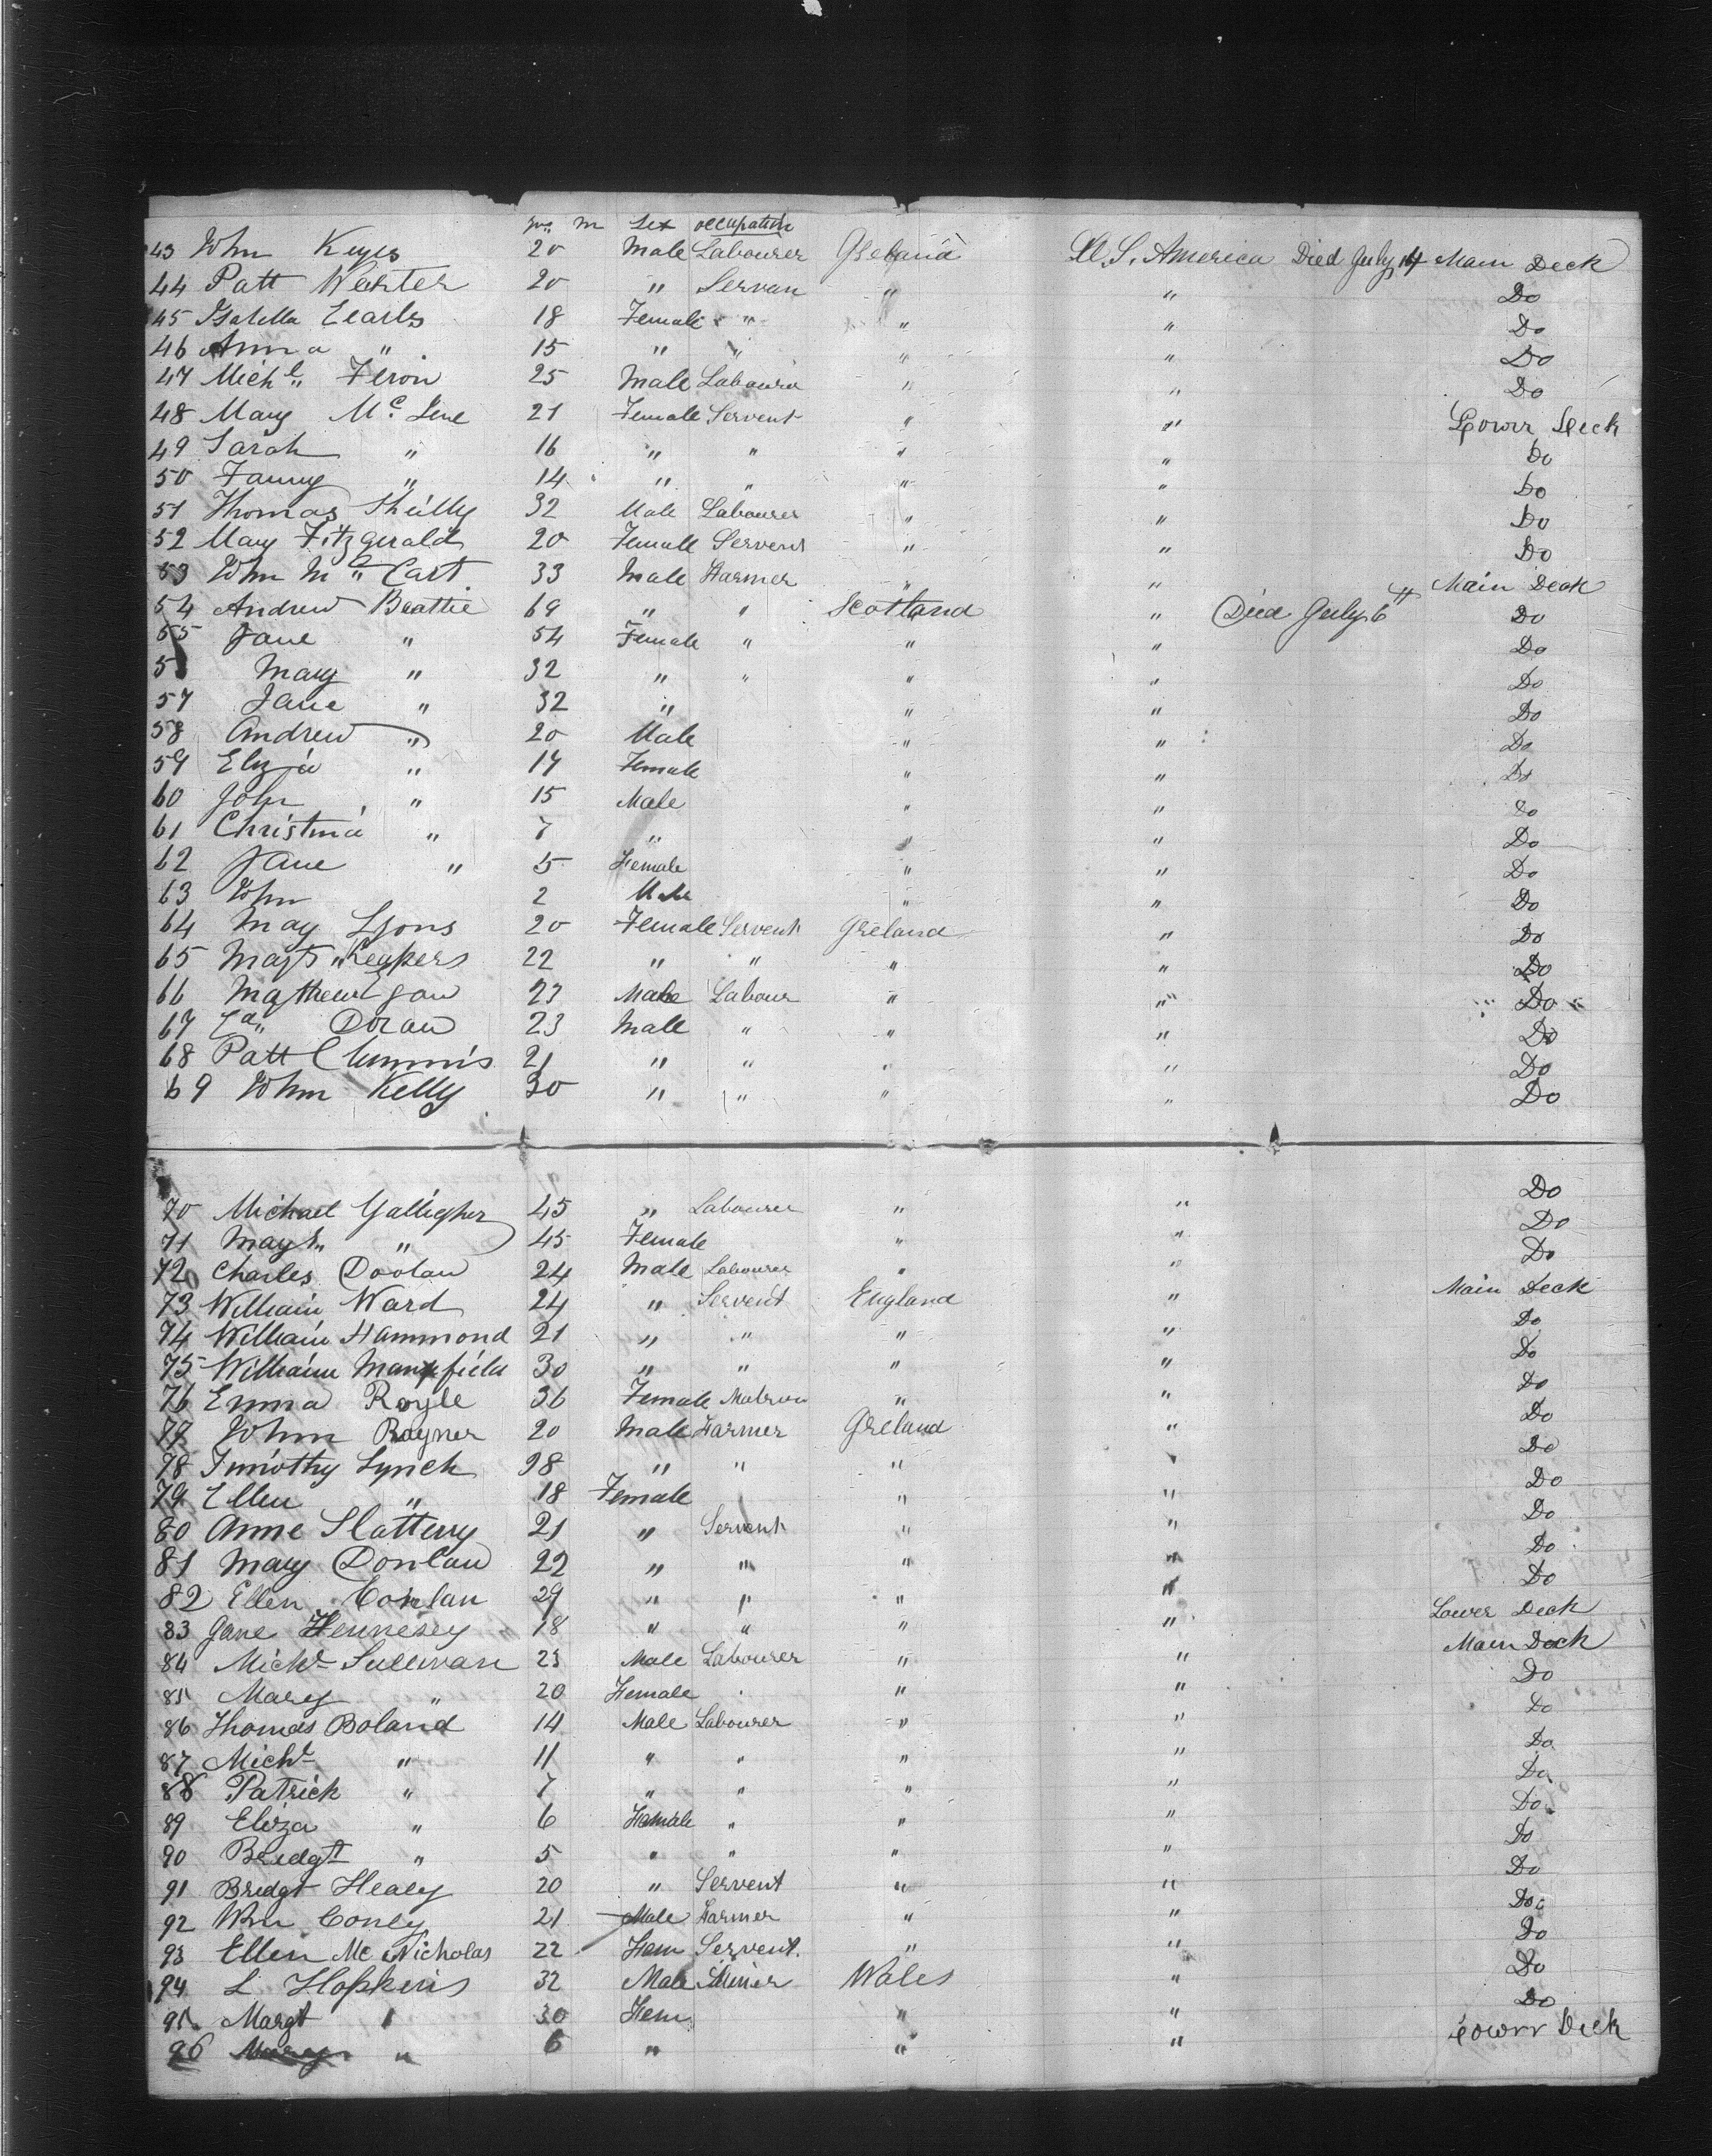 yrs m Sex occupation
43 John Keyes 20 Male Labourer Ireland U.S. America Died July 14 Main Deck
44 Patt 20 " Servan " " Do
45 Isabella Earls 18 Female " " " Do
46 Anna " 15 " " " " Do
47 Michl. Feron 25 Male Laboura " " Do
48 Mary Mc 21 Female Servent " " Lowrr Deck
49 Sarah " 16 " " " " Do
50 Fanny " 14 " " " " Do
51 Thomas 32 Male Labourer " " Do
52 Mary Fitzgerald 20 Female Servent " " Do
53 John Mc Cart 33 Male Farmer " " Main Deck
54 Andrew Beattie 69 " " Scotland " Died July 6th Do
55 Jane " 54 Female " " " Do
5 Mary " 32 " " " " Do
57 Jane " 32 " " " Do
58 Andrew " 20 Male " " Do
59 Eliza " 17 Female " " Do
60 John " 15 Male " " Do
61 Christina " 7 " " " Do
62 Jane " 5 Female " " Do
63 John 2 Male " " Do
64 May Lyons 20 Female Servent Ireland " Do
65 Margt 22 " " " " Do
66 Mathew Egan 23 Male Labour " " Do
67 Doran 23 Male " " " Do
68 Patt Cummins 21 " " " " Do
69 John Kelly 30 " " " " Do
70 Michael Galligher 45 " Labourer " " Do
71 " 45 Female " " Do
72 Charles Doolan 24 Male Labourer " " Do
73 William Ward 24 " Servent England " Main Deck
74 William Hammond 21 " " " " Do
75 William Mansfield 30 " " " " Do
76 Emma Royle 36 Female Matron " " Do
77 John Rayner 20 Male Farmer Ireland " Do
78 Timothy Lynch 98 " " " " Do
79 Ellen " 18 Female " " Do
80 Anne Slattery 21 " Servent " " Do
81 Mary Donlan 22 " " " " Do
82 Ellen Conlan 29 " " " " Do
83 Jane Hennesey 18 " " " " Lower Deck
84 Michl Sullivan 23 Male Labourer " " Main Deck
85 Mary " 20 Female " " Do
86 Thomas Boland 14 Male Labourer " " Do
87 Michl " 11 " " " " Do
88 Patrick " 7 " " " " Do
89 Eliza " 6 Female " " " Do
90 Bridgt " 5 " " " " Do
91 Bridgt Healy 20 " Servent " " Do
92 Wm Conly 21 Male Farmer " " Do
93 Ellen Mc Nicholas 22 Fem Servent. " " Do
94 L Hopkins 32 Male Miner Wales " Do
95 Margt " 30 Fem " " Do
96 Mary " 6 " " " Lowrr Deck